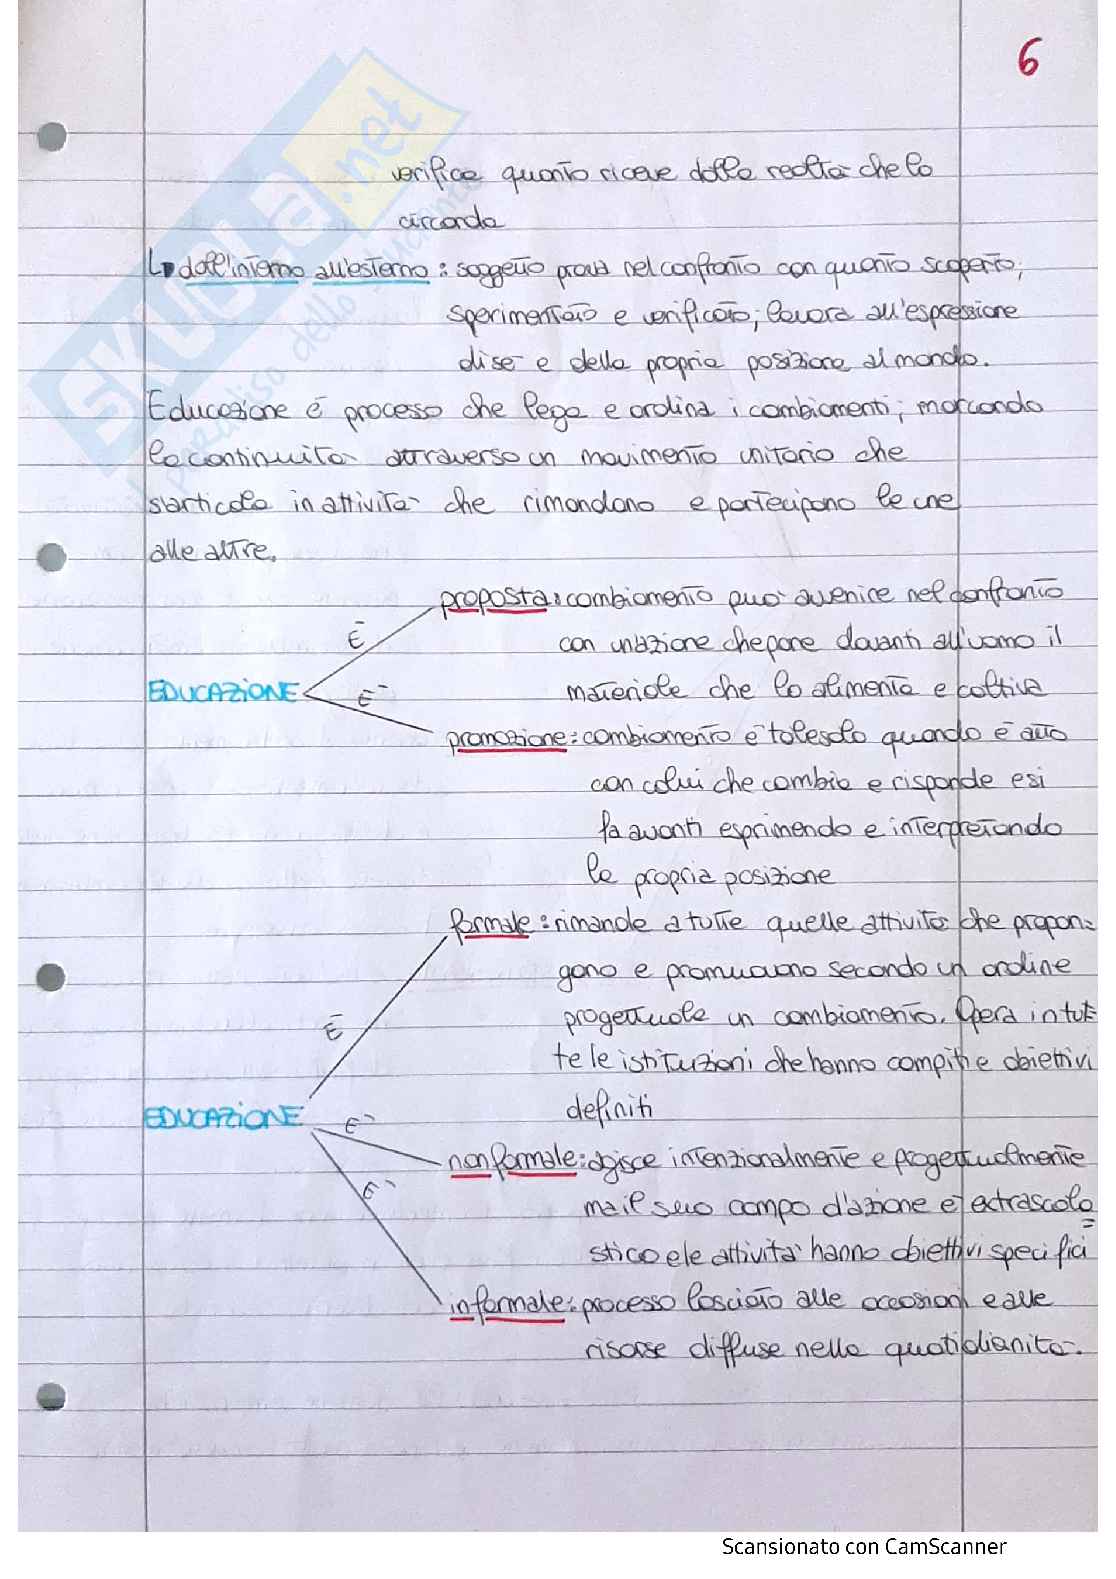 6
verifica quanto riceve dalla realtà che lo
circonda
↳ dall'interno all'esterno: soggetto prova nel confronto con quanto scoperto,
sperimentato e verificato; lavora all'espressione
di sé e della propria posizione al mondo.
Educazione è processo che lega e ordina i cambiamenti; marcando
la continuità attraverso un movimento unitario che
s'articola in attività che rimandano e partecipano le une
alle altre.
proposta: cambiamento può avvenire nel confronto
È
con un'azione che pone davanti all'uomo il
EDUCAZIONE
È
materiale che lo alimenta e coltiva
promozione: cambiamento è tale solo quando è
con colui che cambia e risponde e si
fa avanti esprimendo e interpretando
la propria posizione
formale: rimanda a tutte quelle attività che propon-
gono e promuovono secondo un ordine
È
progettuale un cambiamento. Opera in tut
te le istituzioni che hanno compiti e obiettivi
EDUCAZIONE
È
definiti
non formale: agisce intenzionalmente e progettualmente
È
ma il suo campo d'azione è extrascola=
stico e le attività hanno obiettivi specifici
informale: processo lasciato alle occasioni e alle
risorse diffuse nella quotidianità.
SKUOLA.net
il paradiso dello studente
Scansionato con CamScanner